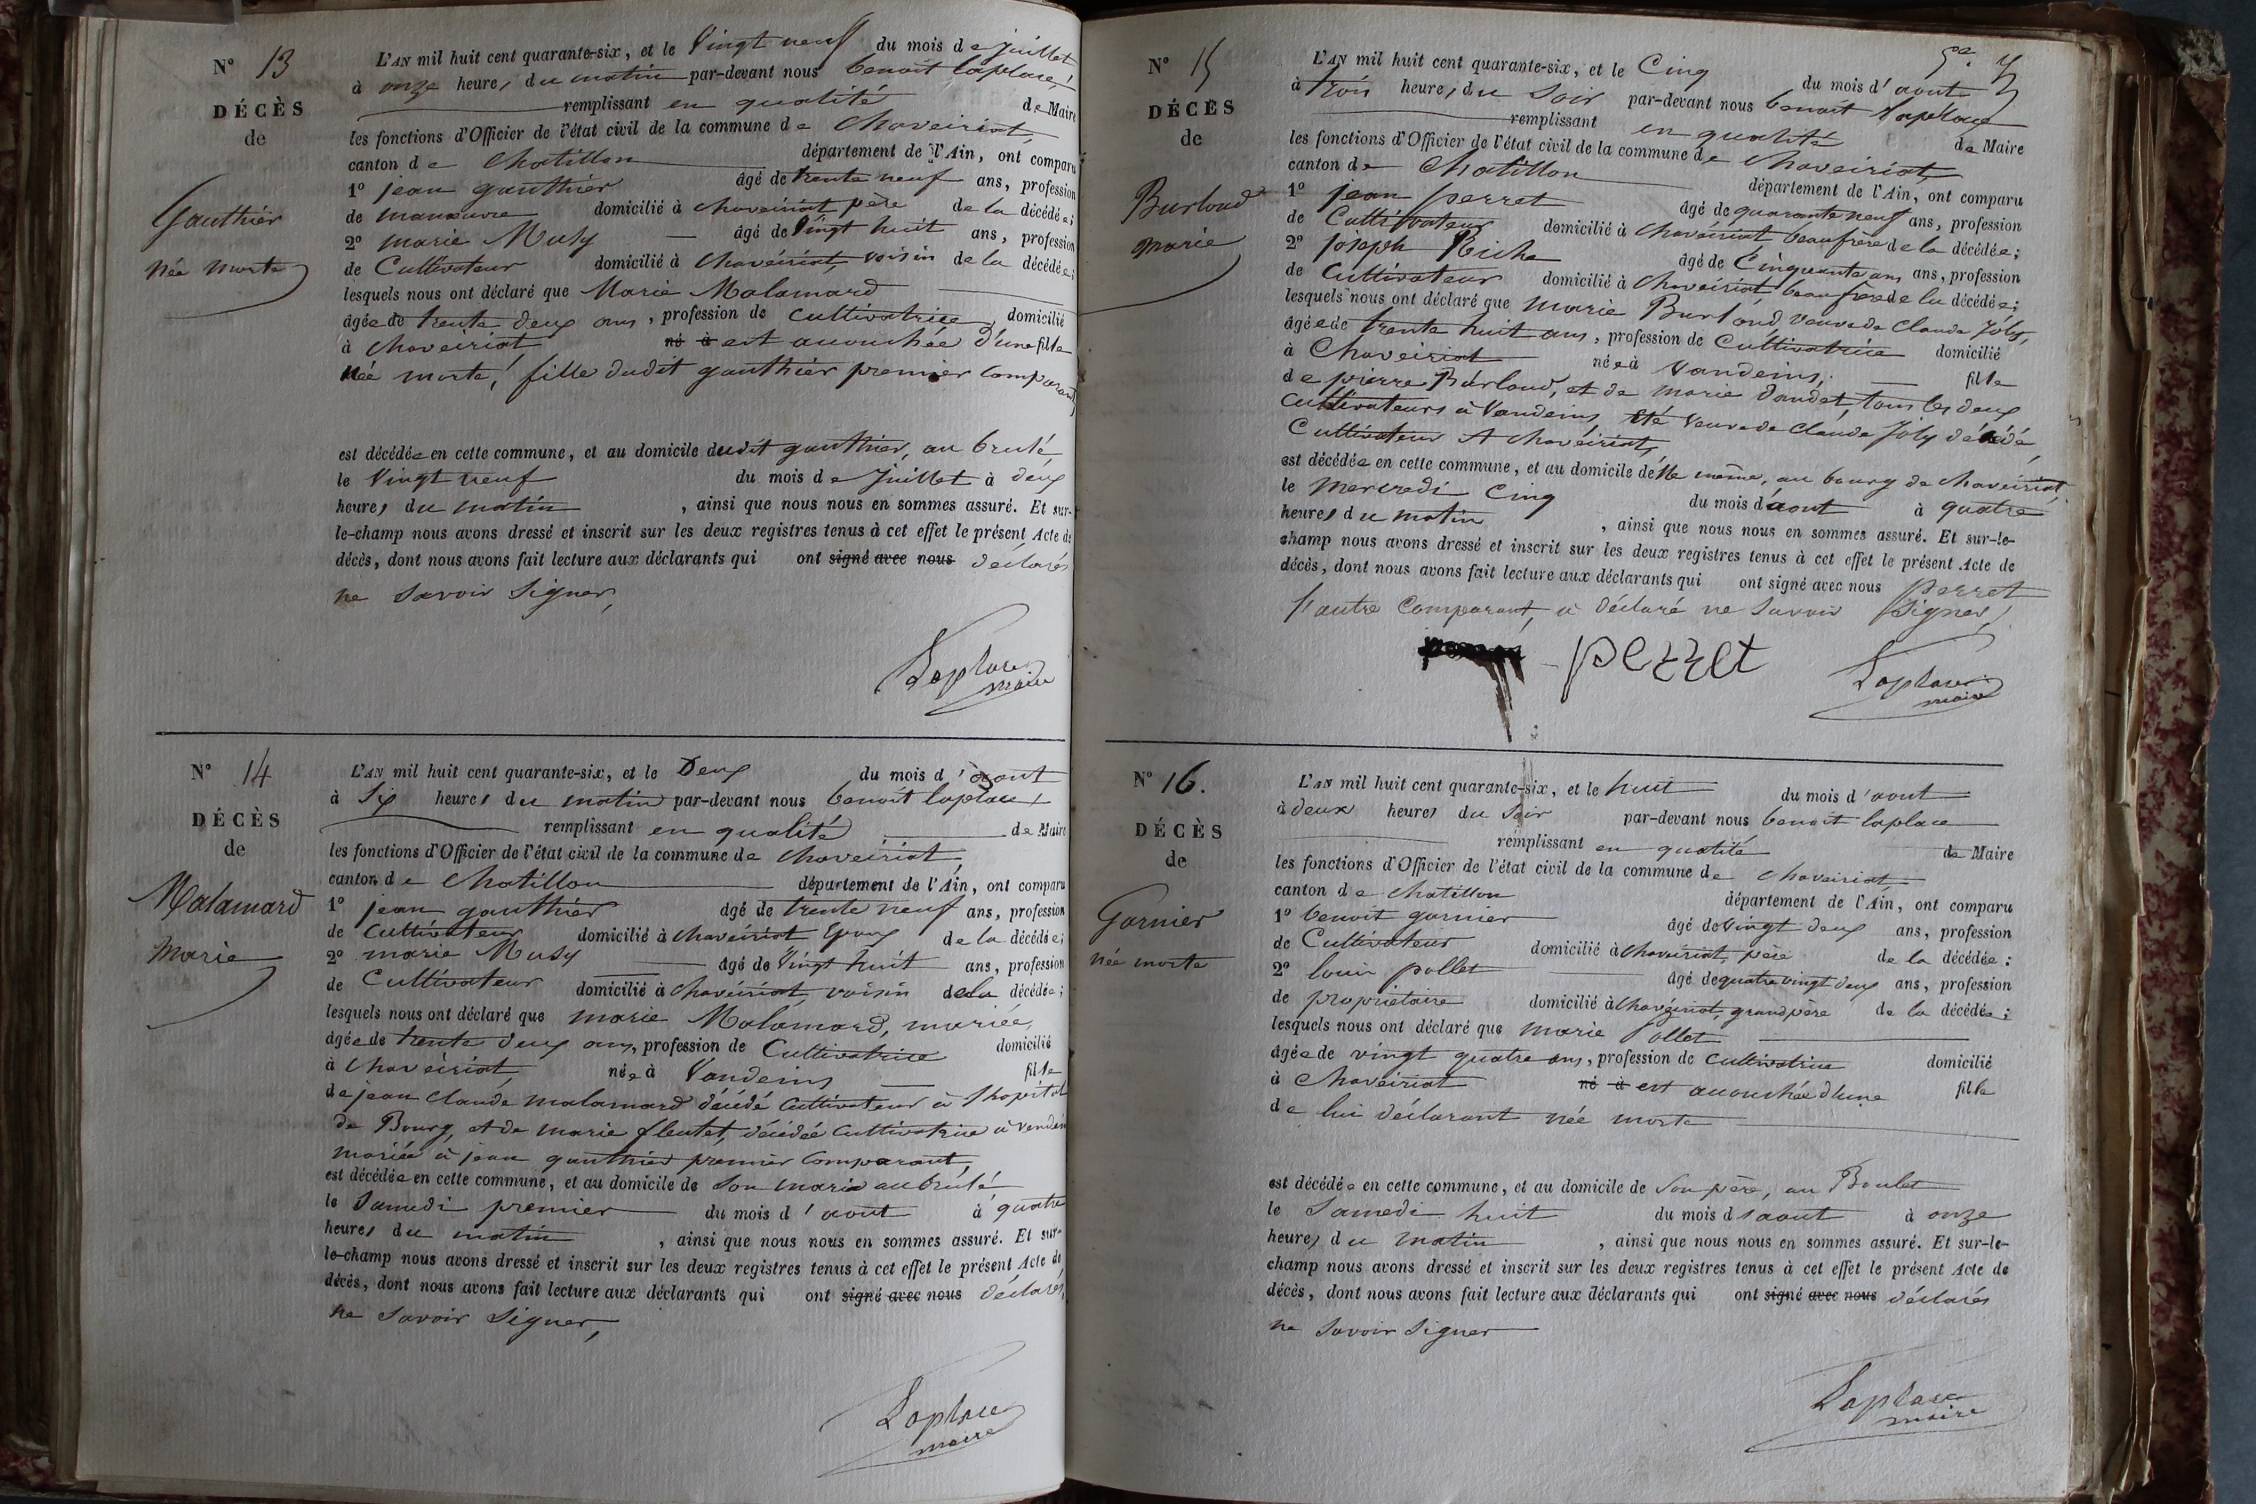 N° 13
DÉCÈS
de
Gauthier
née morte
L'AN mil huit cent quarante-six, et le Vingt neuf du mois de juillet
à onze heures du matin par-devant nous benoit laplace
remplissant en qualité de Maire
les fonctions d'Officier de l'état civil de la commune de chaveiriat
canton de chatillon département de l'Ain, ont comparu
1° jean gauthier âgé de trente neuf ans, profession
de manœuvre domicilié à chaveiriat père de la décédée;
2° marie Musy âgé de Vingt huit ans, profession
de Cultivateur domicilié à chaveiriat, voisin de la décédée;
lesquels nous ont déclaré que Marie Malamard
âgée de trente deux ans, profession de cultivatrice domicilié
à chaveiriat né à est accouchée d'une fille
née morte, fille dudit gauthier premier comparant,
est décédée en cette commune, et au domicile dudit gauthier, au brulé,
le Vingt neuf du mois de Juillet à deux
heures du matin, ainsi que nous nous en sommes assuré. Et sur-
le-champ nous avons dressé et inscrit sur les deux registres tenus à cet effet le présent Acte de
décès, dont nous avons fait lecture aux déclarants qui ont signé avec nous déclarés
ne savoir signer,
Laplace
maire
N° 14
DÉCÈS
de
Malamard
marie
L'AN mil huit cent quarante-six, et le Deux du mois d'aout
à Six heures du matin par-devant nous benoit laplace
remplissant en qualité de Maire
les fonctions d'Officier de l'état civil de la commune de chaveiriat
canton de chatillon département de l'Ain, ont comparu
1° jean gauthier âgé de trente neuf ans, profession
de Cultivateur domicilié à chaveiriat Epoux de la décédée;
2° marie Musy âgé de Vingt huit ans, profession
de Cultivateur domicilié à chaveiriat, voisin de la décédée;
lesquels nous ont déclaré que marie Malamard, mariée,
âgée de trente deux ans, profession de Cultivatrice domicilié
à chaveiriat, née à Vandeins fille
de jean claude malamard décédé cultivateur à l'hopital
de Bourg, et de marie fleutet, décédée cultivatrice à vandeins
mariée à jean gauthier premier comparant,
est décédée en cette commune, et au domicile de son mari au brulé
le Samedi premier du mois d'aout à quatre
heures du matin, ainsi que nous nous en sommes assuré. Et sur-
le-champ nous avons dressé et inscrit sur les deux registres tenus à cet effet le présent Acte de
décès, dont nous avons fait lecture aux déclarants qui ont signé avec nous déclarés,
ne savoir signer,
Laplace
maire
N° 15
DÉCÈS
de
Burloud
marie
L'AN mil huit cent quarante-six, et le Cinq du mois d'aout
à trois heures du Soir par-devant nous benoit laplace
remplissant en qualité de Maire
les fonctions d'Officier de l'état civil de la commune de chaveiriat
canton de Chatillon département de l'Ain, ont comparu
1° jean perret âgé de quarante neuf ans, profession
de Cultivateur domicilié à chaveiriat beaufrère de la décédée;
2° joseph Riche âgé de Cinquante ans ans, profession
de Cultivateur domicilié à chaveiriat beaufrère de la décédée;
lesquels nous ont déclaré que marie Burloud veuve de Claude Joly,
âgée de trente huit ans, profession de Cultivatrice domicilié
à Chaveiriat née à Vandeins, fille
de pierre Burloud, et de marie daudet, tous les deux
cultivateurs à Vandeins, veuve de Claude Joly décédé
Cultivateur A chaveiriat,
est décédée en cette commune, et au domicile d'elle même, au bourg de chaveiriat
le mercredi Cinq du mois d'aout à quatre
heures du matin, ainsi que nous nous en sommes assuré. Et sur-le-
champ nous avons dressé et inscrit sur les deux registres tenus à cet effet le présent Acte de
décès, dont nous avons fait lecture aux déclarants qui ont signé avec nous perret
l'autre comparant, a déclaré ne savoir signer,
perret
Laplace
maire
N° 16.
DÉCÈS
de
Garnier
née morte
L'AN mil huit cent quarante-six, et le huit du mois d'aout
à deux heures du Soir par-devant nous benoit laplace
remplissant en qualité de Maire
les fonctions d'Officier de l'état civil de la commune de chaveiriat,
canton de chatillon département de l'Ain, ont comparu
1° benoit garnier âgé de Vingt deux ans, profession
de Cultivateur domicilié à chaveiriat, père de la décédée:
2° louis pollet âgé de quatre vingt deux ans, profession
de propriétaire domicilié à chaveiriat, grand père de la décédée;
lesquels nous ont déclaré que marie Pollet
âgée de vingt quatre ans, profession de cultivatrice domicilié
à Chaveiriat né à est accouchée d'une fille
de lui déclarant née morte
est décédée en cette commune, et au domicile de son père, au Boulet
le Samedi huit du mois d'aout à onze
heures du matin, ainsi que nous nous en sommes assuré. Et sur-le-
champ nous avons dressé et inscrit sur les deux registres tenus à cet effet le présent Acte de
décès, dont nous avons fait lecture aux déclarants qui ont signé avec nous déclarés
ne savoir signer
Laplace
maire